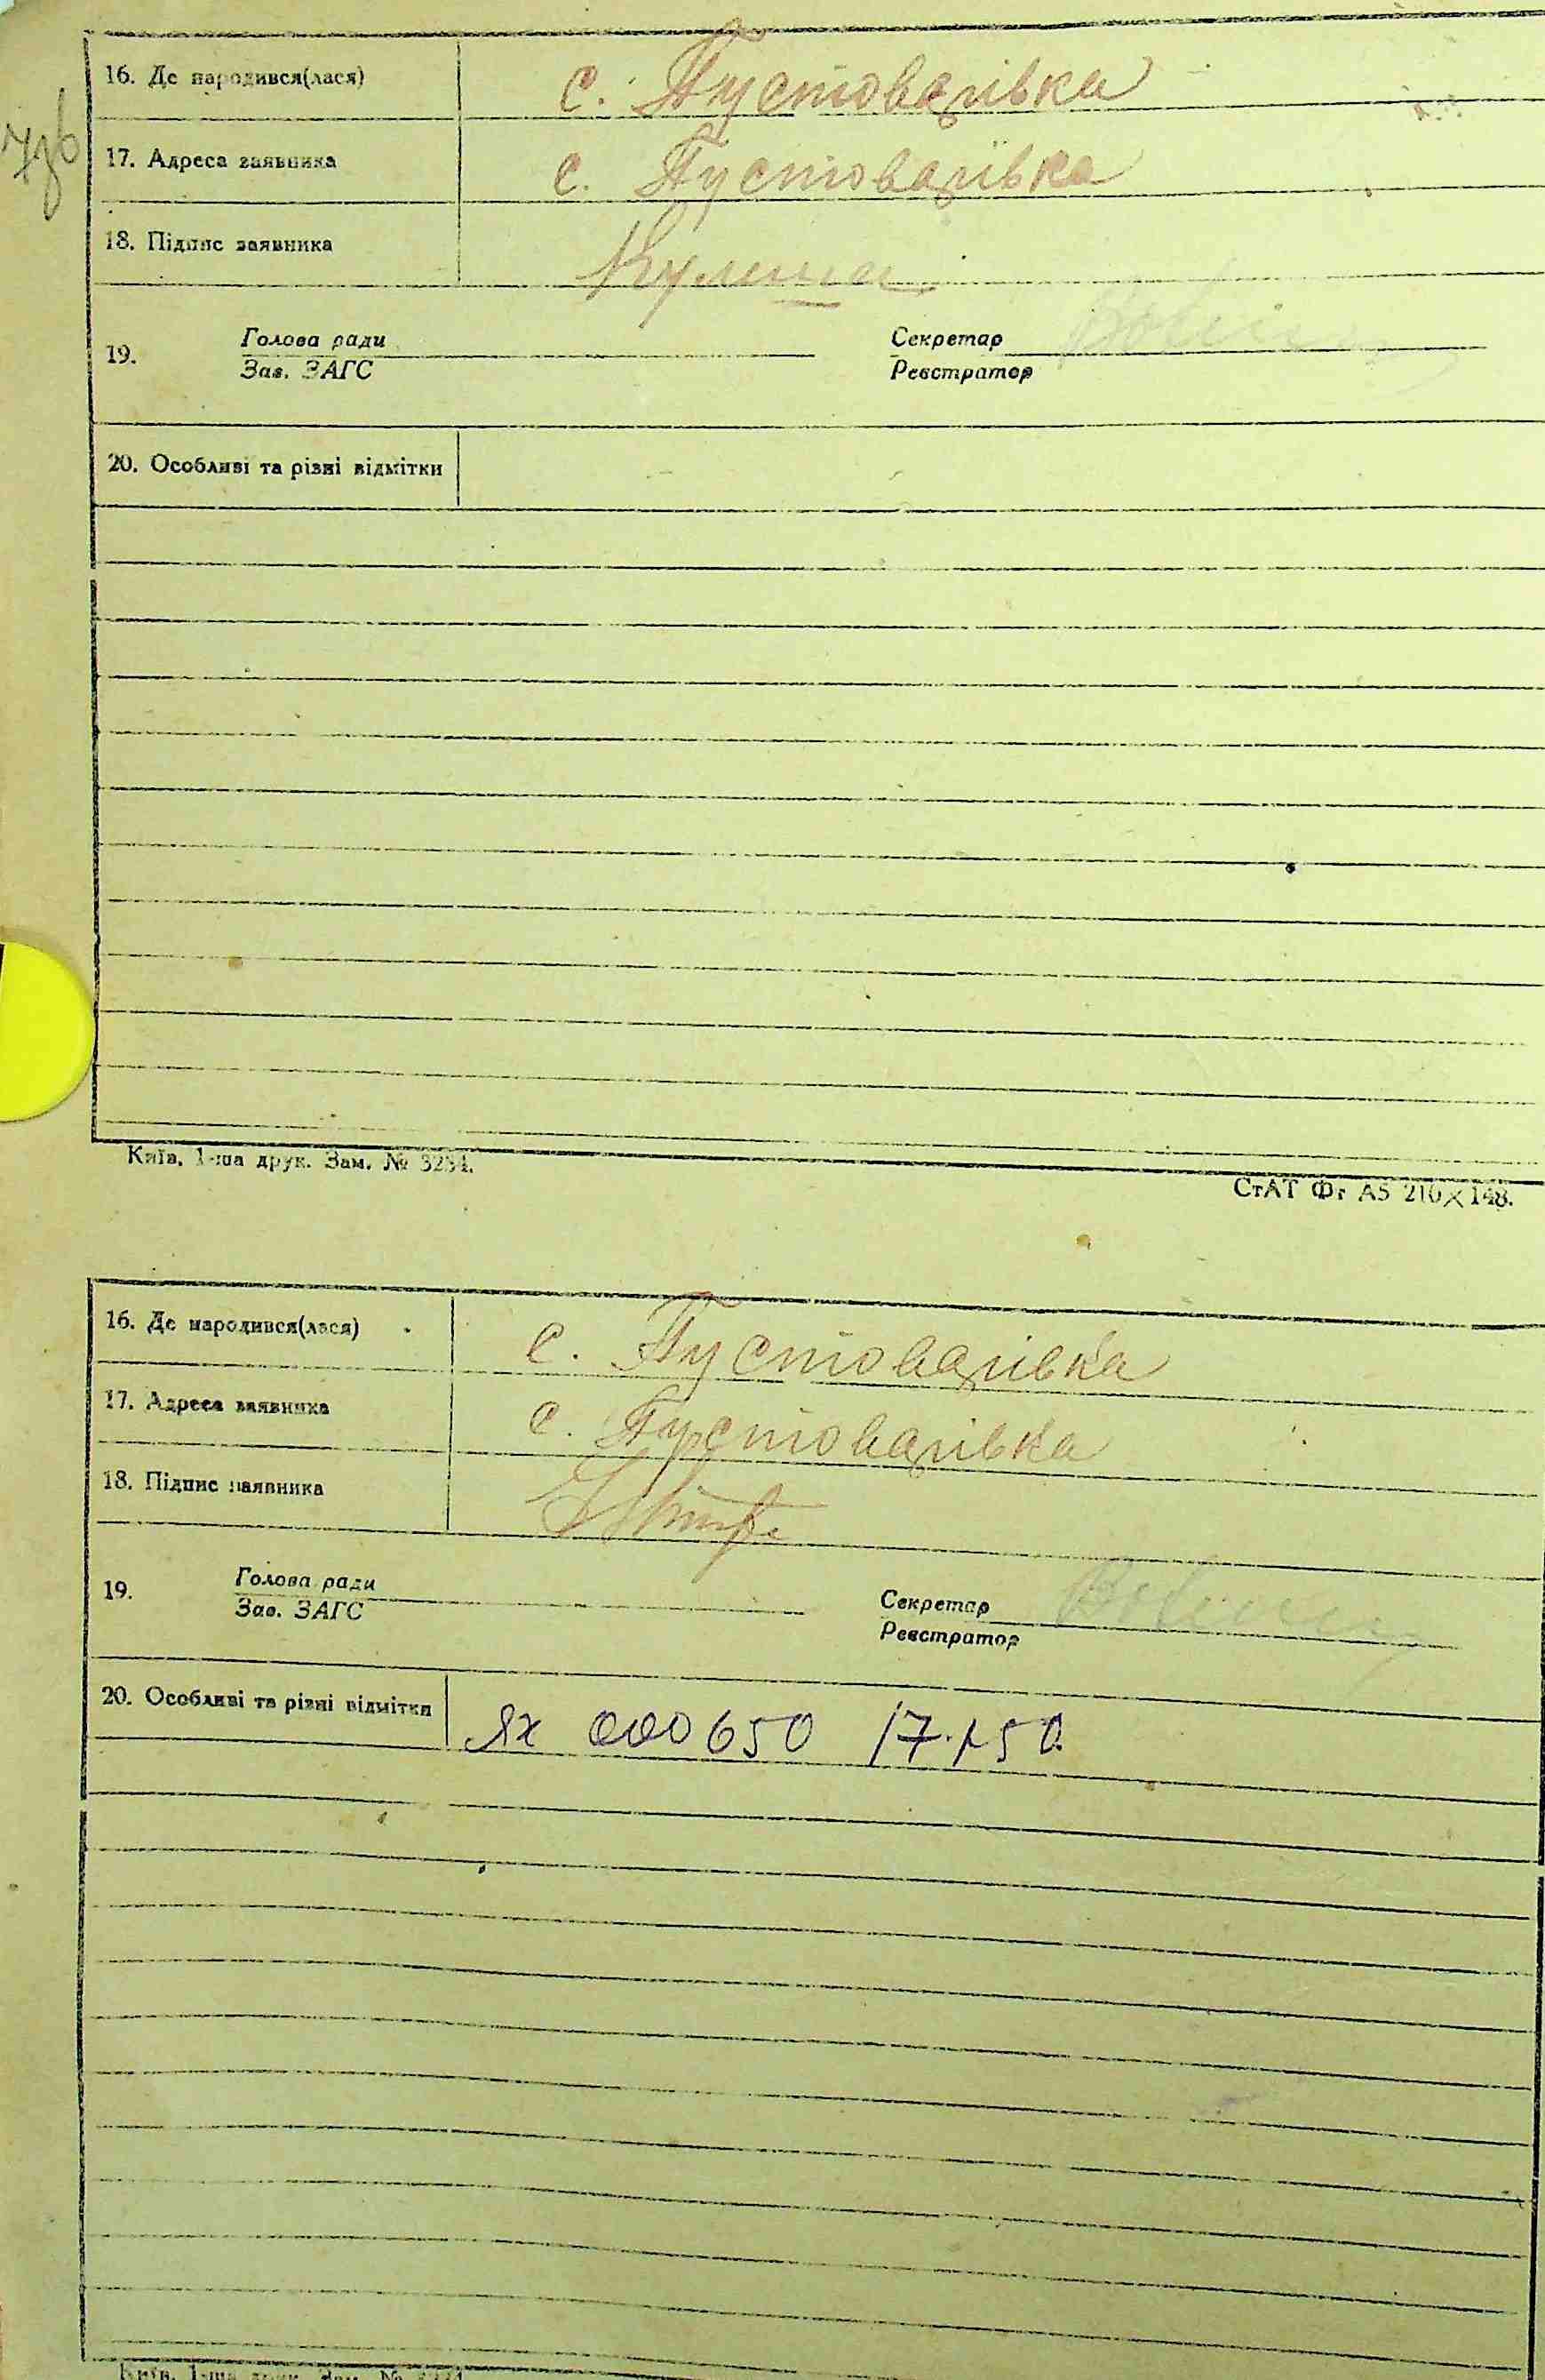 16. Де народився(лася) с. Пустоварівка
17. Адреса заявника с. Пустоварівка
18. Підпис заявника Кулеша
19. Голова ради Секретар
Зав. ЗАГС Реєстратор
20. Особливі та різні відмітки
Київ, 1-ша друк. Зам. № 3234.
СтАТ Фг А5 210×148.
16. Де народився(лася) с. Пустоварівка
17. Адреса заявника с. Пустоварівка
18. Підпис заявника
19. Голова ради Секретар
Зав. ЗАГС Реєстратор
20. Особливі та різні відмітки ЯХ 000650 17.
Київ, 1-ша друк. Зам. №